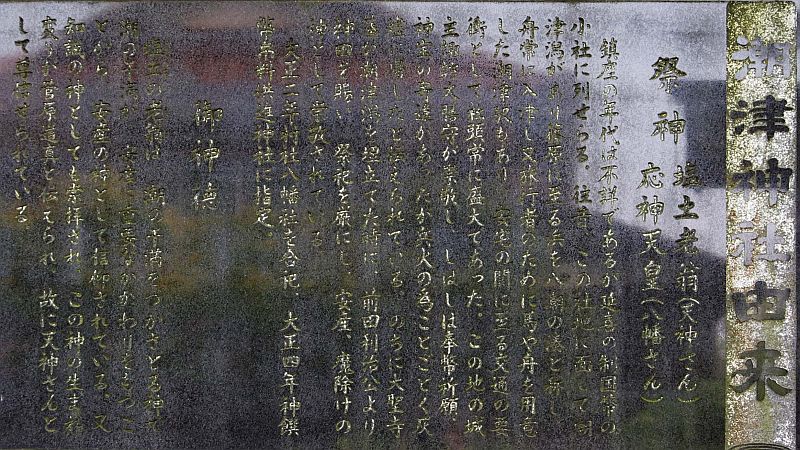 潮津神社由来
祭神 塩土老翁(天神さん)
応神天皇(八幡さん)
鎮座の年代は不詳であるが延喜の制国幣の
小社に列せらる、往昔、この社地に面して潮
津潟があり篠原に至る
舟常に入津し又旅行者のために馬や舟を用意
した潮津駅があり、安宅の関に至る交通の要
衝として社頭常に盛大であった。この地の城
主 が崇敬し、しばしば奉幣祈願、
神宝の寄進があったが兵火の為ことごとく灰
燼に帰したと伝えられている。のちに大聖寺
藩が潮津潟を埋立てた時に、前田利治公より
神田を賜い、祭祀を厳にし、安産、魔除けの
神として崇敬されている。
大正二年村社八幡社を合祀、大正四年神饌
幣帛料供進神社に指定。
御神徳
塩土の老翁は、潮の干満をつかさどる神で
潮の干満が、安産に重要なかかわりをもつこ
とから、安産の神として信仰されている。又
知識の神としても崇拝され、この神の生れ
変りが菅原道真と伝えられ、故に天神さんと
して尊信せられている。